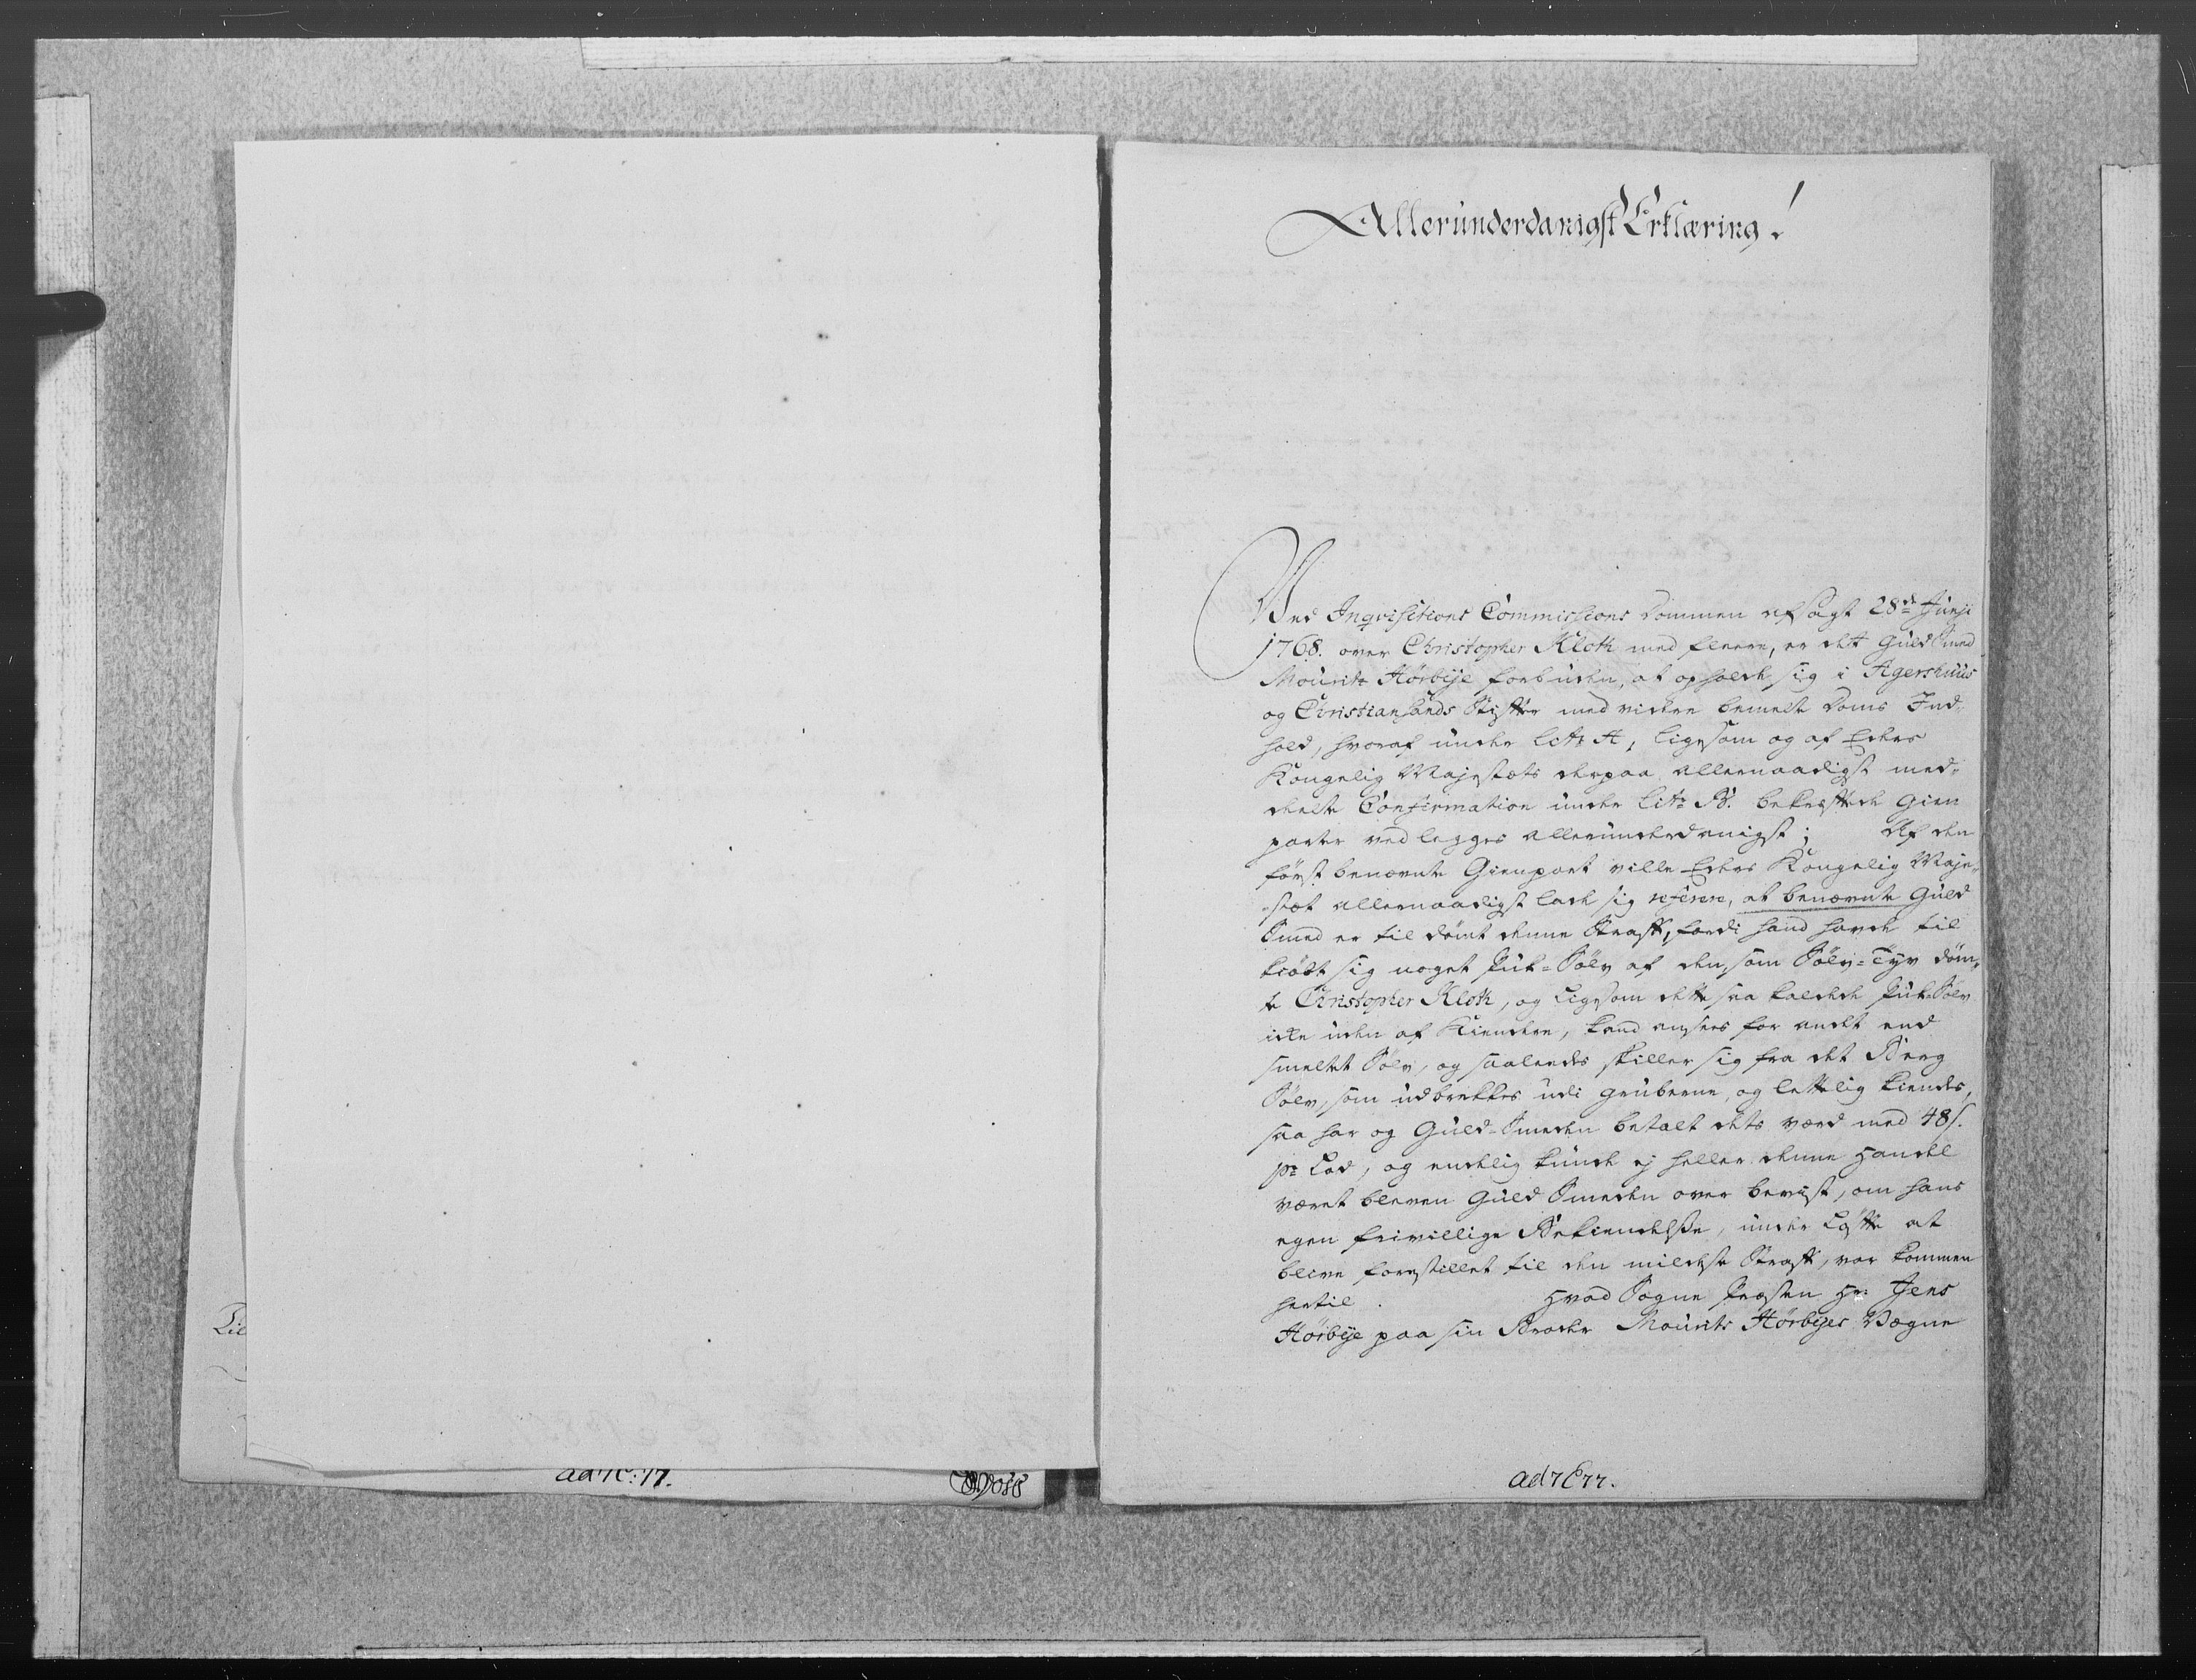 Allerunderdanigst Erklæring!
Ved Inqvisitions Commissions Dommen afsagt 28de Junji
1768. over Christopher Kloth med fleere, er det Guld Smed
Mouritz Hørbye forbuden, at opholde sig i Agershuus
og Christiansands Stifter med videre bemelte Doms Ind-
hold, hvoraf under Litr A, ligesom og af Eders
Kongelig Majestæts derpaa allernaadigst med-
deelte Confirmation under Litr B. bekræftede Gien
parter vedlegges allerunderdanigst; Af den
først benævnte Gienpart ville Eders Kongelig Maje-
-stæt allernaadigst lade sig referere, at benævnte Guld
Smed er til dømt denne Straff, fordi hand havde til
kiøbt sig noget Puk-Sølv af den, som Sølv-Tyv døm-
te Christopher Kloth, og ligesom dette saa kaldede Puk-Sølv
icke uden af Kiendere, kand ansees for andet end
smeltet Sølv, og saaledes skiller sig fra det Berg
Sølv, som udbrekkes udi Gruberne, og lettelig kiendes,
saa har og Guld-Smeden betalt dets værd med 48 s.
pr Lod, og endelig kunde ej heller denne Handel
været bleven Guld Smeden over beviist, om hans
egen frivillige Bekiendelse, under Løfte at
blive forestillet til den mildeste Straff, var kommen
hertil. Hvad Sogne Præsten Hr: Jens
Hørbye paa sin Broder Mouritz Hørbyes Vægne
ad 7 C 77.
Lie
ad 7 C: 77.